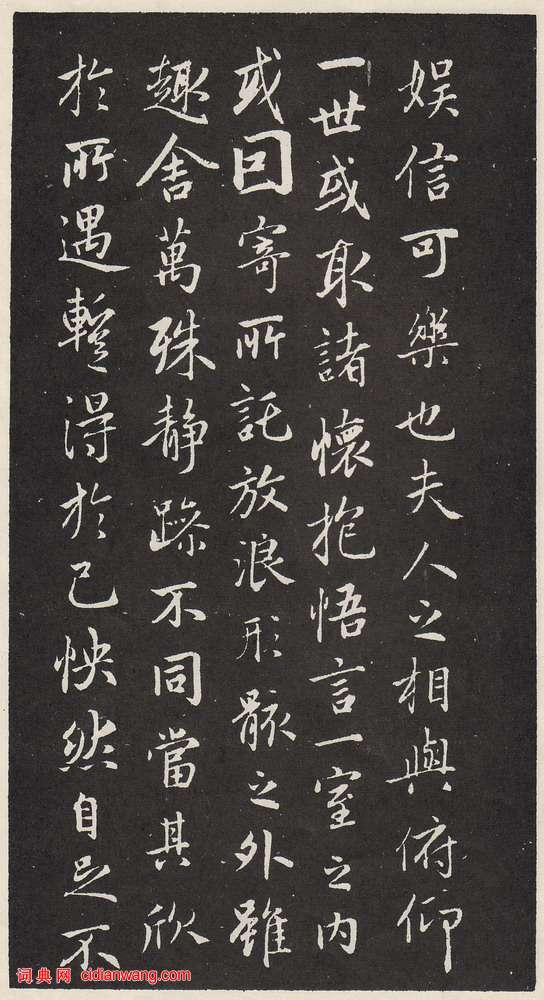 娱信可樂也夫人之相與俯仰
一世或取諸懷抱悟言一室之内
或因寄所託放浪形骸之外雖
趣舍萬殊静躁不同當其欣
於所遇暫得於己怏然自足不
词典网 cidianwang.com